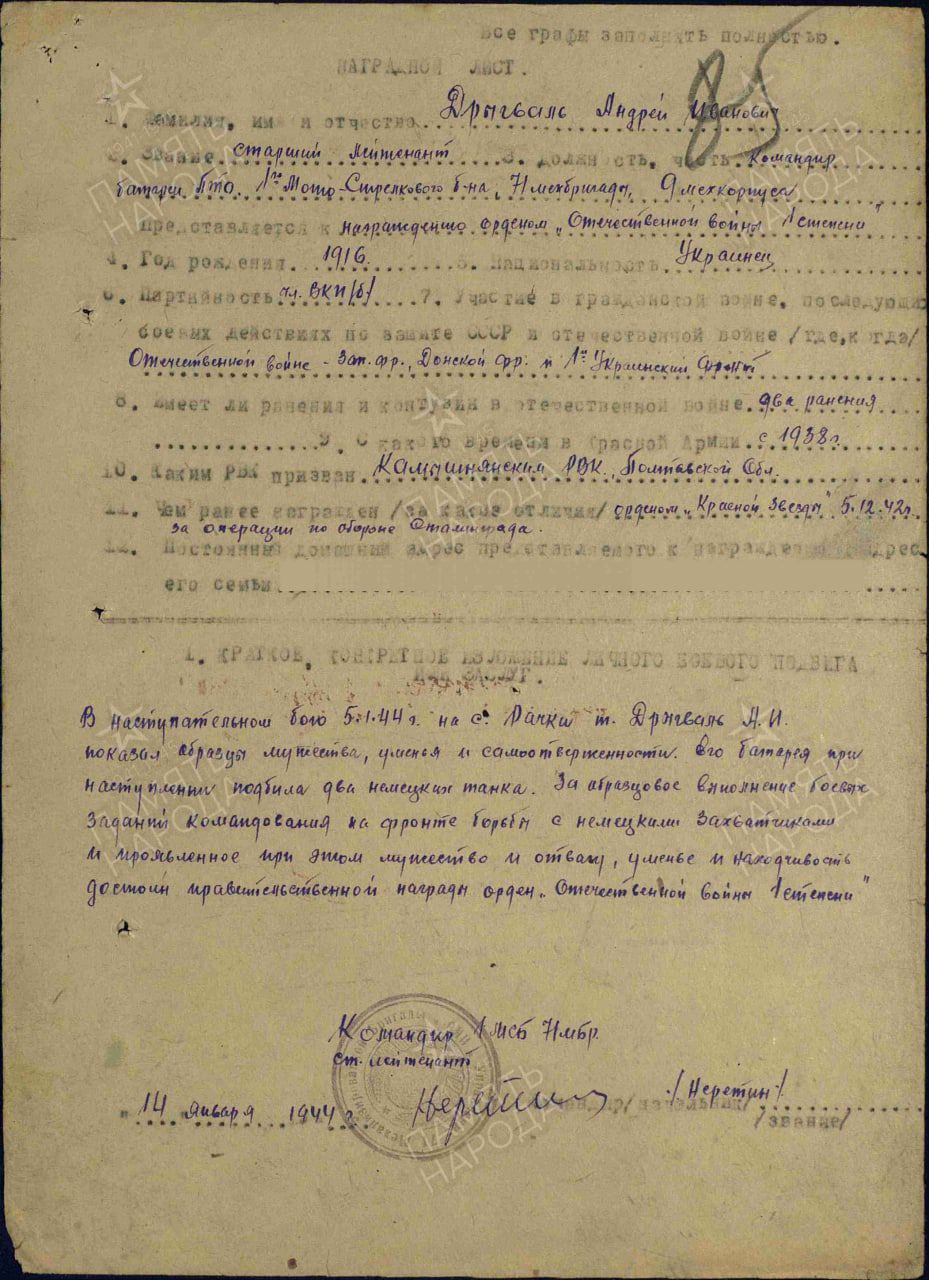 Все графы заполнять полностью.
85
НАГРАДНОЙ ЛИСТ.
1. Фамилия, имя и отчество Дрыгваль Андрей Иванович
2. Звание старший лейтенант 3. должность, часть командир
батареи ПТО 1го Мото-Стрелкового б-на, 71 мехбригады, 9 мехкорпуса
Представляется к награждению орденом „Отечественной войны 1 степени"
4. Год рождения 1916. 5. Национальность Украинец
6. Партийность чл. ВКП/б/ 7. Участие в гражданской войне, последующих
боевых действиях по защите СССР и отечественной войне /где, когда/
Отечественной войне - Зап. фр., Донской фр. и 1й Украинский фронт
8. Имеет ли ранения и контузии в отечественной войне два ранения
9. С какого времени в Красной Армии с 1938 г.
10. Каким РВК призван Камышнянским РВК, Полтавской Обл.
11. Чем ранее награжден /за какие отличия/ орденом „Красной Звезды" 5.12.42 г.
за операции по обороне Сталинграда.
12. Постоянный домашний адрес представляемого к награждению и адрес
его семьи
1. КРАТКОЕ, КОНКРЕТНОЕ ИЗЛОЖЕНИЕ ЛИЧНОГО БОЕВОГО ПОДВИГА
ИЛИ ЗАСЛУГ.
В наступательном бою 5.1.44 г. на с. Рачки т. Дрыгваль А.И.
показал образцы мужества, уменья и самоотверженности. Его батарея при
наступлении подбила два немецких танка. За образцовое выполнение боевых
заданий командования на фронте борьбы с немецкими захватчиками
и проявленное при этом мужество и отвагу, уменье и находчивость
достоин правительственной награды орден „Отечественной войны 1 степени"
Командир 1 МСБ 71 мбр.
ст. лейтенант
Неретин /Неретин/
„14 января 1944 г. командир/начальник/
/звание/
ПАМЯТЬ НАРОДА